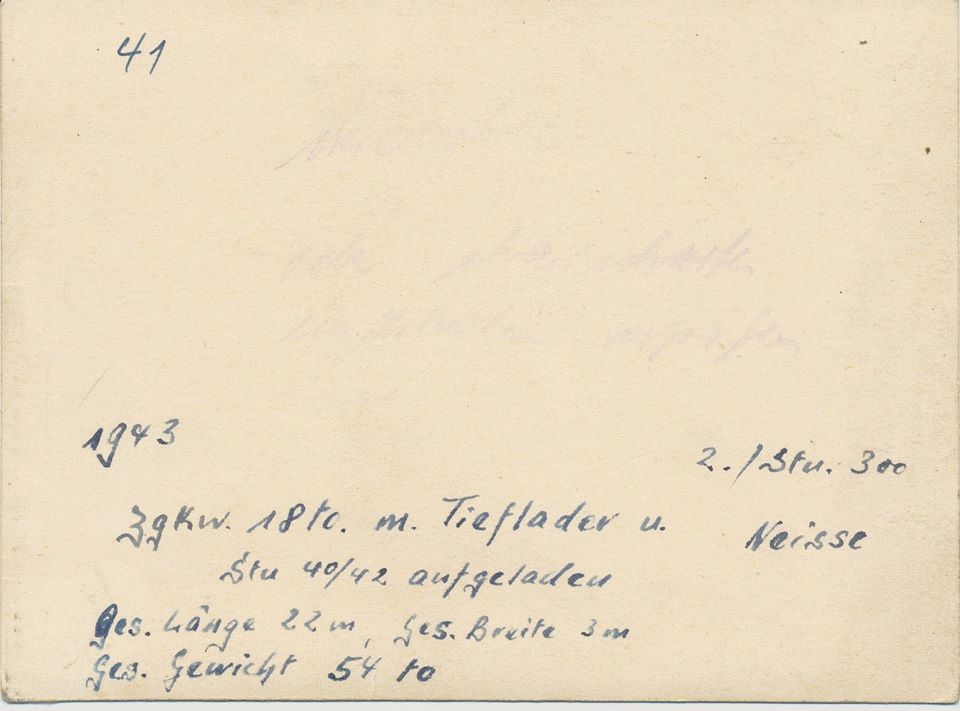 41
1943
2./Stu. 300
Zgkw. 18to. m. Tieflader u.
Neisse
Stu 40/42 aufgeladen
Ges. Länge 22 m, Ges. Breite 3 m
Ges. Gewicht 54 to